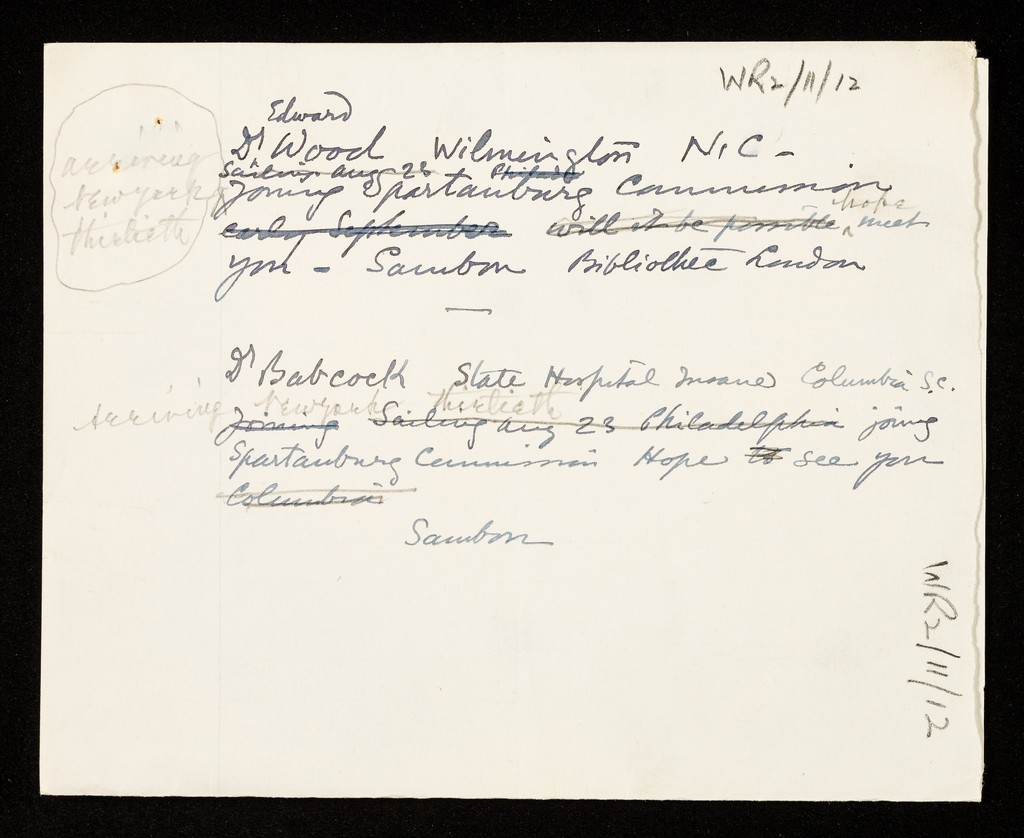 WR2/11/12
Edward
Dr Wood Wilmington N.C -
Sailing Aug 23 Philad
arriving
New York
thirtieth
Joining Spartanburg Commission
hope
early September will it be possible meet
you - Sambon Bibliothec London
Dr Babcock State Hospital Insane Columbia S.C.
Arriving New York thirtieth
Joining Sailing Aug 23 Philadelphia joing
Spartanburg Commission Hope to see you
Columbia
Sambon
WR2/11/12